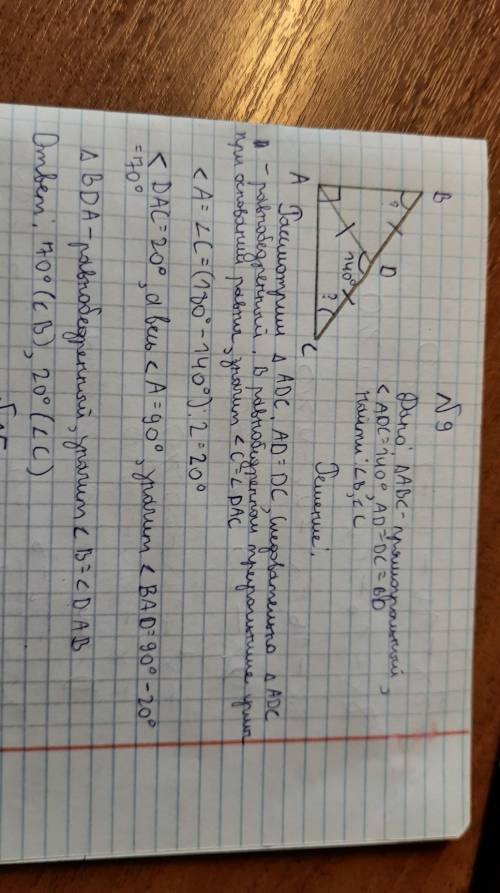 №9
Дано: ΔABC - прямоугольный,
<ADC=140°, AD=DC=BD
Найти: ∠B, ∠C
Решение:
B
?
D
140°
?
A
C
Рассмотрим Δ ADC. AD=DC, следовательно Δ ADC
- равнобедренный. В равнобедренном треугольнике углы
при основании равны, значит <C=∠DAC
<A=∠C=(180°-140°):2=20°
<DAC=20°, а весь <A=90°, значит <BAD=90°-20°
=70°
Δ BDA - равнобедренный, значит <B=<DAB
Ответ: 70°(∠B), 20°(∠C)